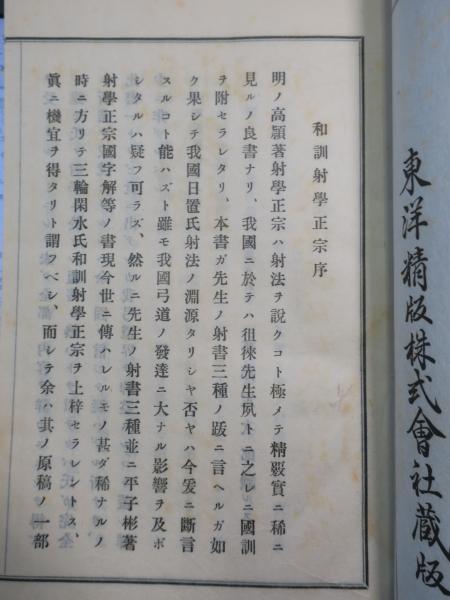 東洋精版株式會社藏版
和訓射學正宗序
明ノ高頴著射學正宗ハ射法ヲ說クコト極メテ精覈實ニ稀ニ
見ルノ良書ナリ、我國ニ於テハ徂徠先生夙トニ之レニ國訓
ヲ附セラレタリ、本書ガ先生ノ射書三種ノ跋ニ言ヘルガ如
ク果シテ我國日置氏射法ノ淵源タリシヤ否ヤハ今爰ニ斷言
スルコト能ハズト雖モ我國弓道ノ發達ニ大ナル影響ヲ及ボ
シタルハ疑フ可ラズ、然ルニ先生ノ射書三種並ニ平子彬著
射學正宗國字解等ノ書現今世ニ傳ハレルモノ甚ダ稀ナルノ
時ニ方リテ三輪閑水氏和訓射學正宗ヲ上梓セラレントス、
眞ニ機宜ヲ得タリト謂フベシ、而シテ余ハ其ノ原稿ノ一部